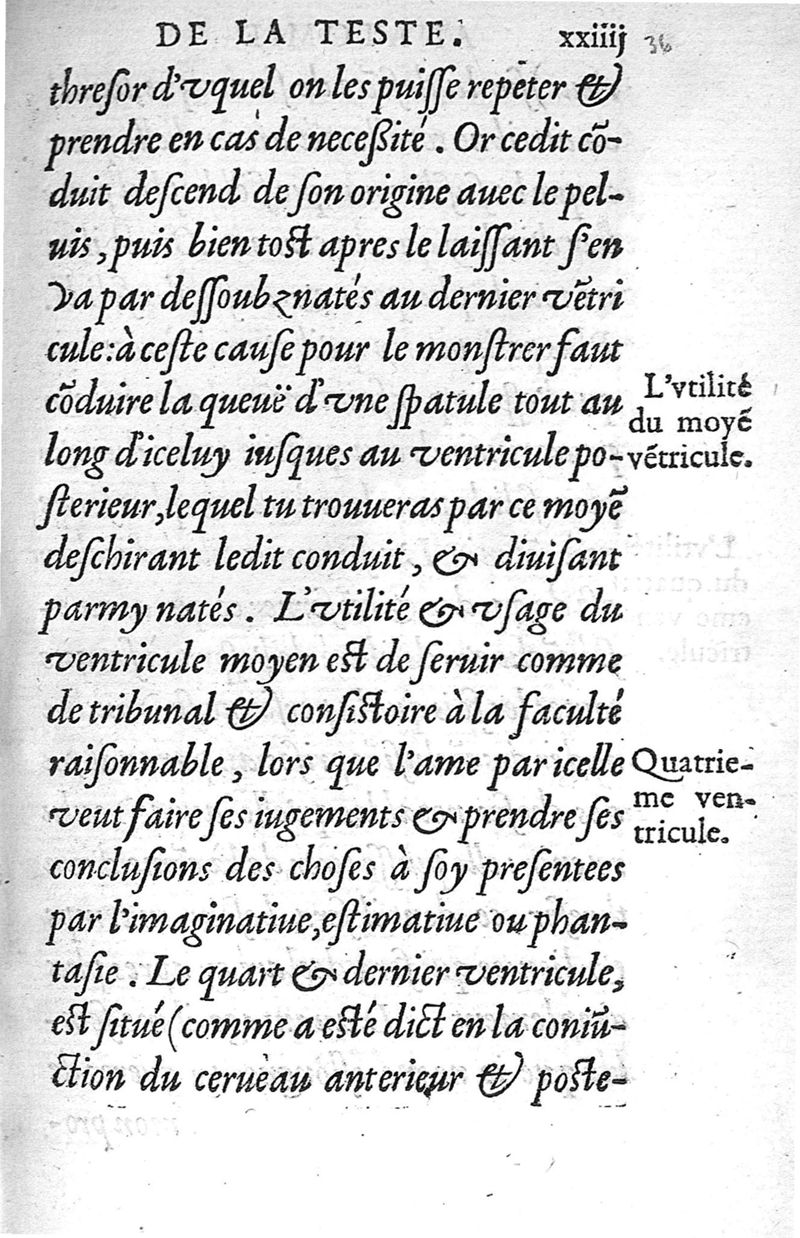 DE LA TESTE. xxiiij 36
thresor d'vquel on les puisse repeter &
prendre en cas de necessité. Or cedit cō-
duit descend de son origine auec le pel-
uis, puis bien tost apres le laissant s'en
va par dessoubz natés au dernier vētri
cule: à ceste cause pour le monstrer faut
cōduire la queuë d'vne spatule tout au
long d'iceluy iusques au ventricule po-
sterieur, lequel tu trouueras par ce moyē
deschirant ledit conduit, & diuisant
parmy natés. L'vtilité & vsage du
ventricule moyen est de seruir comme
de tribunal & consistoire à la faculté
raisonnable, lors que l'ame par icelle
veut faire ses iugements & prendre ses
conclusions des choses à soy presentees
par l'imaginatiue, estimatiue ou phan-
tasie. Le quart & dernier ventricule,
est situé (comme a esté dict en la coniū-
ction du cerueau anterieur & poste-
L'vtilité
du moyē
vētricule.
Quatrie-
me ven-
tricule.